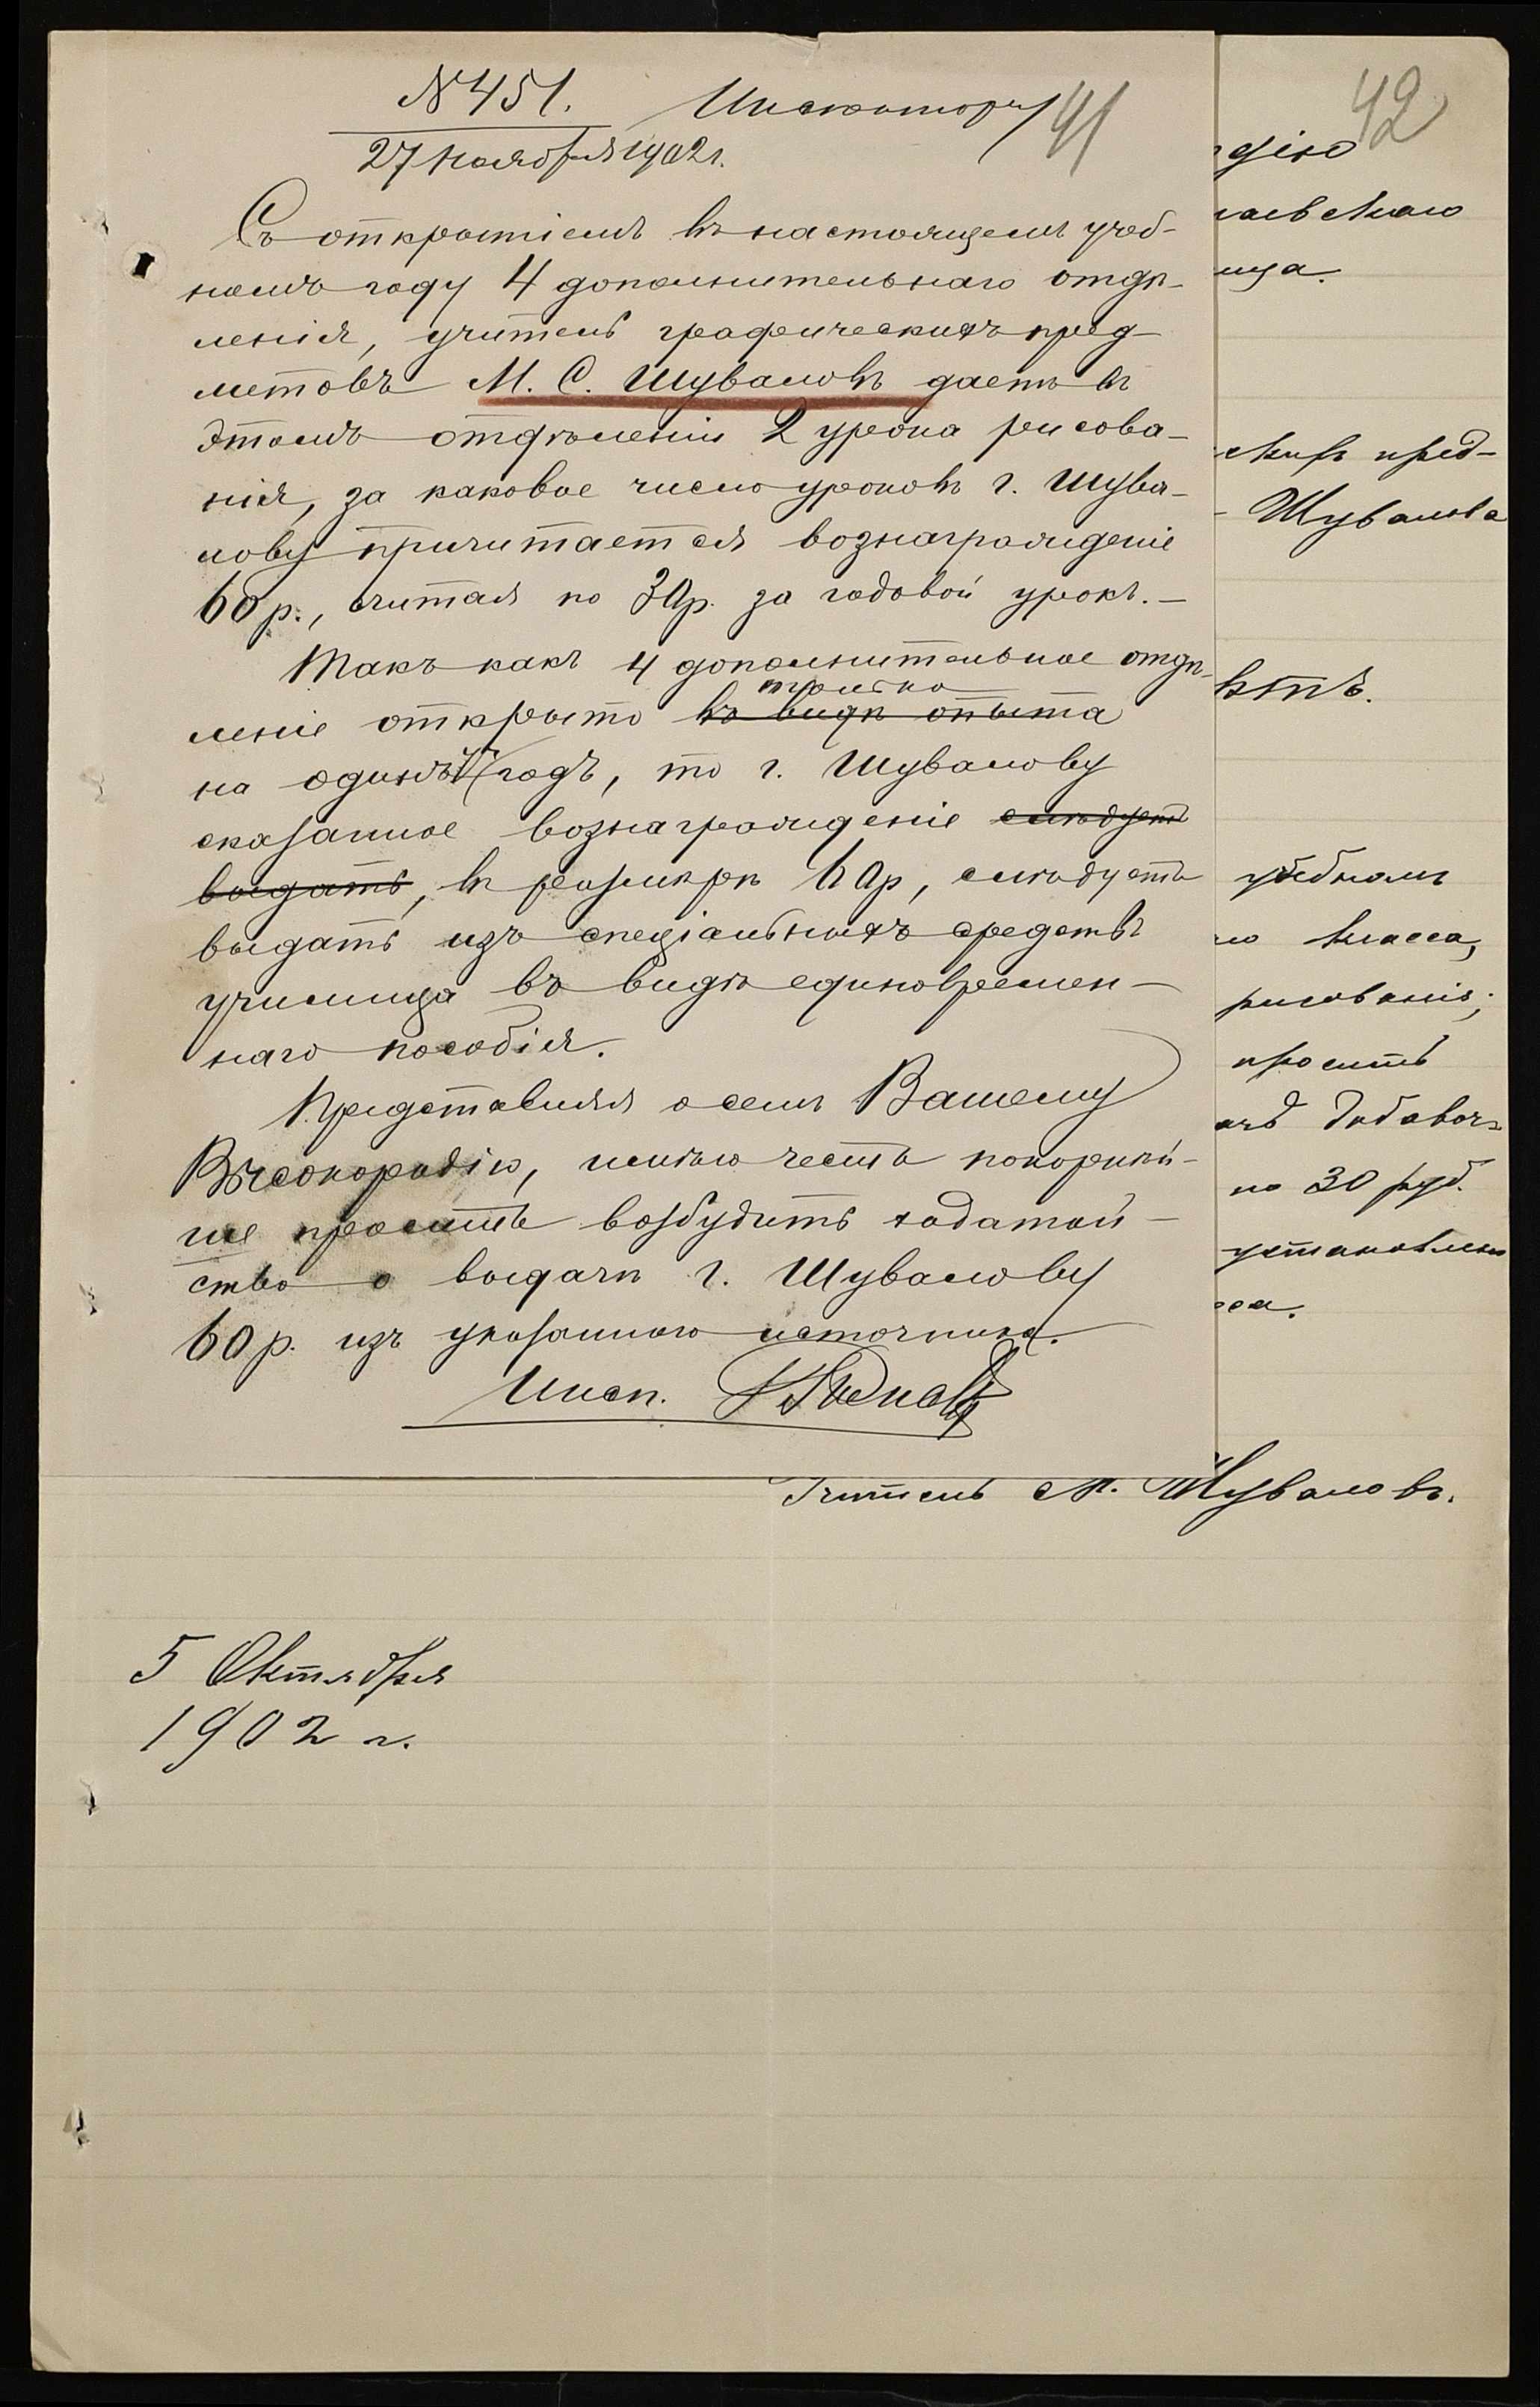 № 451.
Инспектору
41
42
27 Ноября 1902 г.
Съ открытіемъ въ настоящемъ учеб-
номъ году 4 дополнительнаго отдѣ-
ленія, учитель графическихъ пред-
метовъ М. С. Шуваловъ даетъ въ
этомъ отдѣленіи 2 урока рисова-
нія, за каковое число уроковъ г. Шува-
лову причитается вознагражденіе
60 р., считая по 30 р. за годовой урокъ. –
Такъ какъ 4 дополнительное отдѣ-
только
леніе открыто въ видѣ опыта
на одинъ годъ, то г. Шувалову
сказанное вознагражденіе слѣдуетъ
выдать, въ размѣрѣ 60 р, слѣдуетъ
выдать изъ спеціальныхъ средствъ
училища въ видѣ единовремен-
наго пособія.
Представляя о семъ Вашему
Высокородію, имѣю честь покорнѣй-
ше просить возбудить ходатай-
ство о выдачѣ г. Шувалову
60 р. изъ указаннаго источника.
Инсп.
дію
аевскаго
ища.
скихъ пред-
Шувалова
ѣтъ.
учебномъ
го класса,
рисованія;
просить
добавоч-
по 30 руб.
установлен
са.
Учитель М. Шуваловъ.
5 Октября
1902 г.